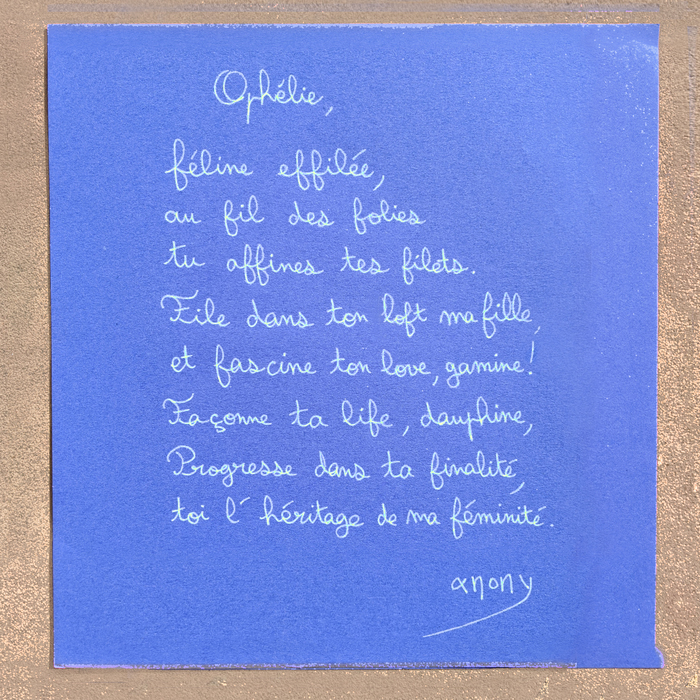 Ophélie,
féline effilée,
au fil des folies
tu affines tes filets.
File dans ton loft ma fille,
et fascine ton love, gamine!
Façonne ta life, dauphine,
Progresse dans ta finalité,
toi l'héritage de ma féminité.
anony